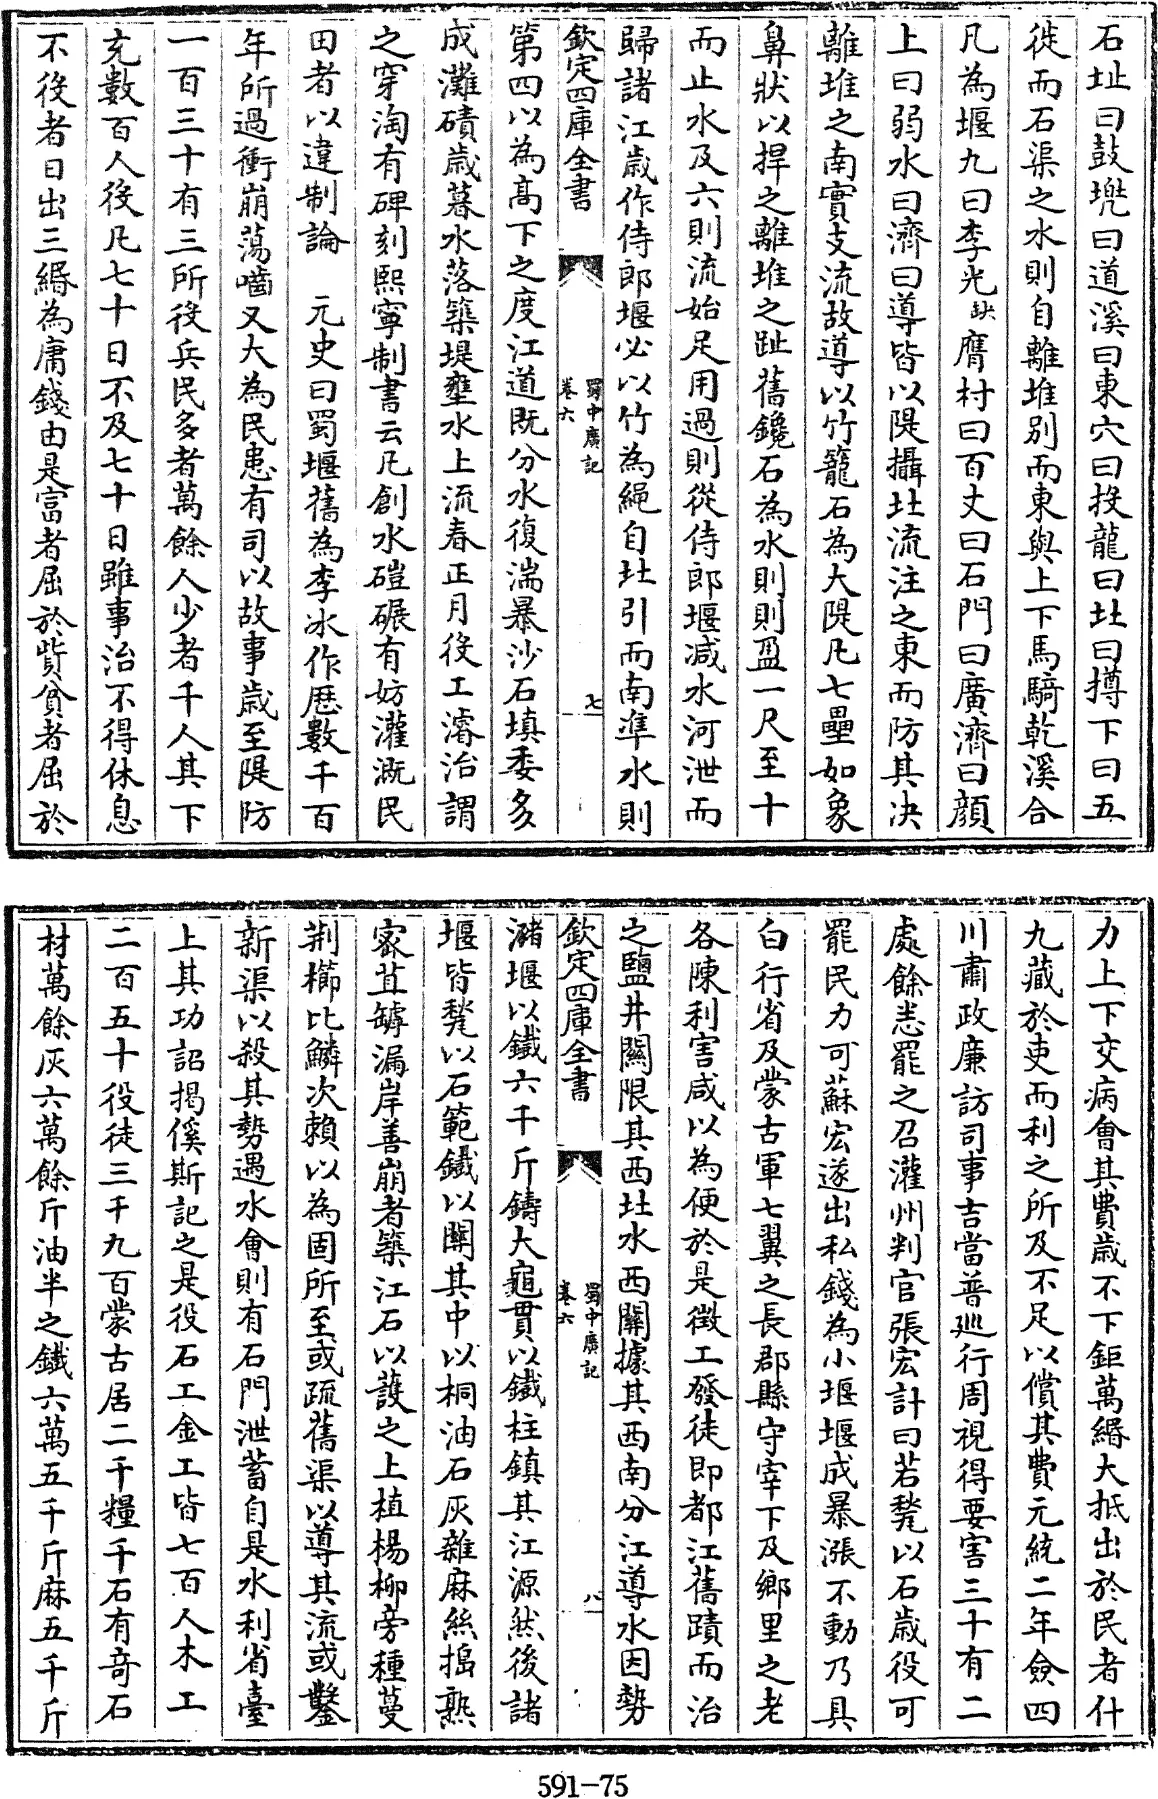 石址曰鼓㙇曰道溪曰東穴曰投龍曰北曰撙下曰五
徙而石渠之水則自離堆别而東與上下馬騎乾溪合
凡為堰九曰李光缺膺村曰百丈曰石門曰廣濟曰顔
上曰弱水曰濟曰導皆以隄攝北流注之東而防其决
離堆之南實支流故導以竹籠石為大隄凡七壘如象
鼻狀以捍之離堆之趾舊鑱石為水則則盈一尺至十
而止水及六則流始足用過則從侍郎堰减水河泄而
歸諸江歳作侍郎堰必以竹為繩自北引而南準水則
欽定四庫全書
蜀中廣記
卷六
七
第四以為高下之度江道既分水復湍暴沙石填委多
成灘磧歳暮水落築堤壅水上流春正月役工濬治謂
之穿淘有碑刻熙寧制書云凡創水磑碾有妨灌溉民
田者以違制論　元史曰蜀堰舊為李冰作厯數千百
年所過衝崩蕩嚙又大為民患有司以故事歳至隄防
一百三十有三所役兵民多者萬餘人少者千人其下
充數百人役凡七十日不及七十日雖事治不得休息
不役者日出三緡為庸錢由是富者屈於貲貧者屈於
力上下交病㑹其費歳不下鉅萬緡大抵出於民者什
九藏於吏而利之所及不足以償其費元統二年僉四
川肅政廉訪司事吉當普廵行周視得要害三十有二
處餘悉罷之召灌州判官張宏計曰若甃以石歳役可
罷民力可蘇宏遂出私錢為小堰堰成暴漲不動乃具
白行省及蒙古軍七翼之長郡縣守宰下及鄉里之老
各陳利害咸以為便於是徵工發徒即都江舊蹟而治
之鹽井關限其西北水西關據其西南分江導水因勢
欽定四庫全書
蜀中廣記
卷六
八
瀦堰以鐵六千斤鑄大龜貫以鐵柱鎮其江源然後諸
堰皆甃以石範鐵以關其中以桐油石灰雜麻絲搗熟
宻苴罅漏岸善崩者築江石以䕶之上植楊柳旁種蔓
荆櫛比鱗次賴以為固所至或疏舊渠以導其流或鑿
新渠以殺其勢遇水㑹則有石門泄蓄自是水利省臺
上其功詔揭傒斯記之是役石工金工皆七百人木工
二百五十役徒三千九百蒙古居二千糧千石有奇石
材萬餘灰六萬餘斤油半之鐵六萬五千斤麻五千斤
591-75